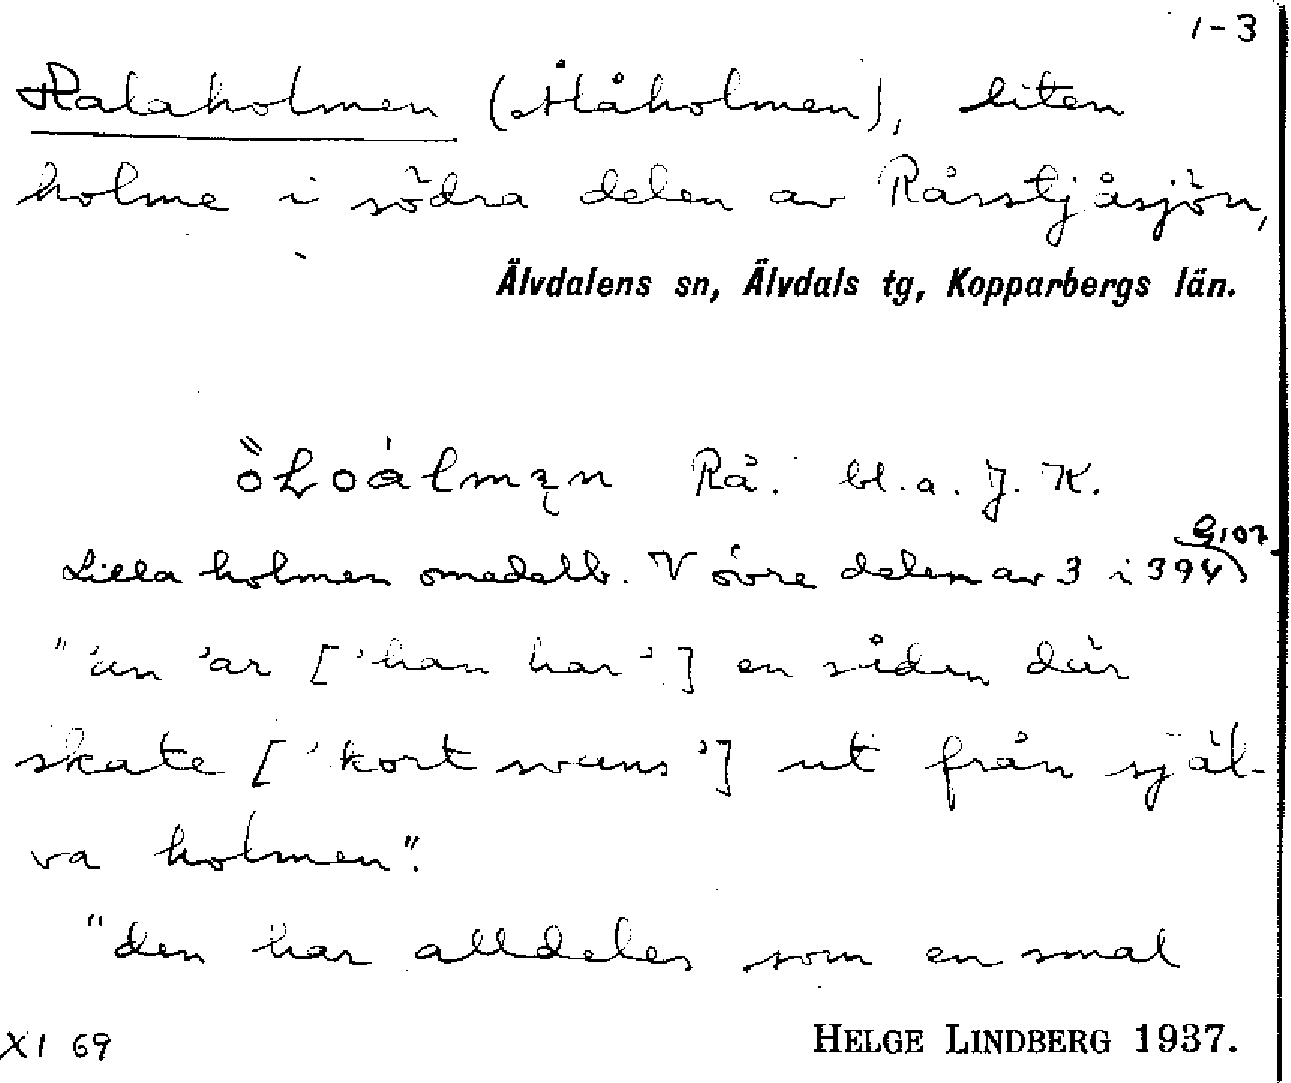 1-3
Halaholmen (Ålåholmen), liten
holme i södra delen av Råsstjåsjön,
Älvdalens sn, Älvdals tg, Kopparbergs län.
Rå. bl.a. J. K.
G107
Lilla holmen omedelb. V övre delen av 3 i 394)
"'an 'ar ['han har'] en sådan där
skate ['kort svans'] ut från själ-
va holmen".
"den har alldeles som en smal
XI 69 HELGE LINDBERG 1937.